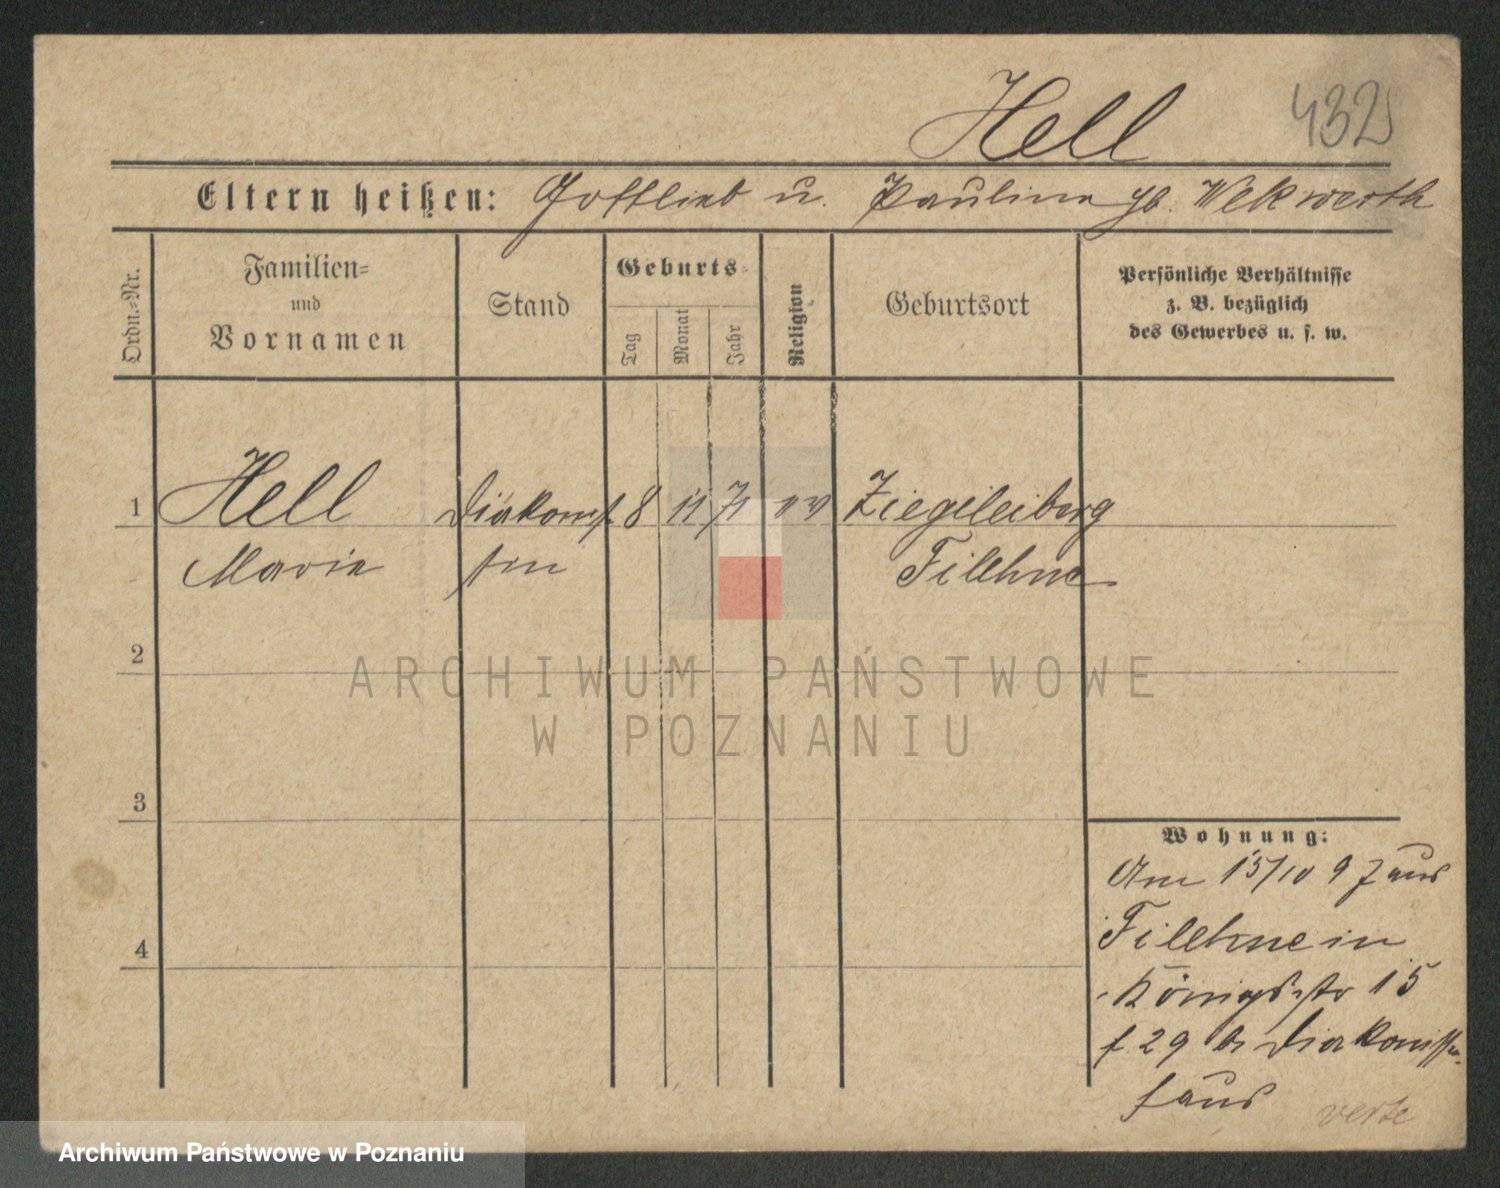 Hell
432
Eltern heißen: Gottlieb u. Pauline gb. Wekwerth
Ordn.-Nr.
Familien-
und
Vornamen
Stand
Geburts-
Tag
Monat
Jahr
Religion
Geburtsort
Persönliche Verhältnisse
z. B. bezüglich
des Gewerbes u. s. w.
1 Hell Diakonis 8 11 71 ev Ziegeleiberg
Marie sin Filehne
2
ARCHIWUM PAŃSTWOWE
W POZNANIU
3
4
Wohnung:
Am 15/10 97 aus
Filehne in
Königsstr 15
f 29 Diakonissen
haus
verte
Archiwum Państwowe w Poznaniu